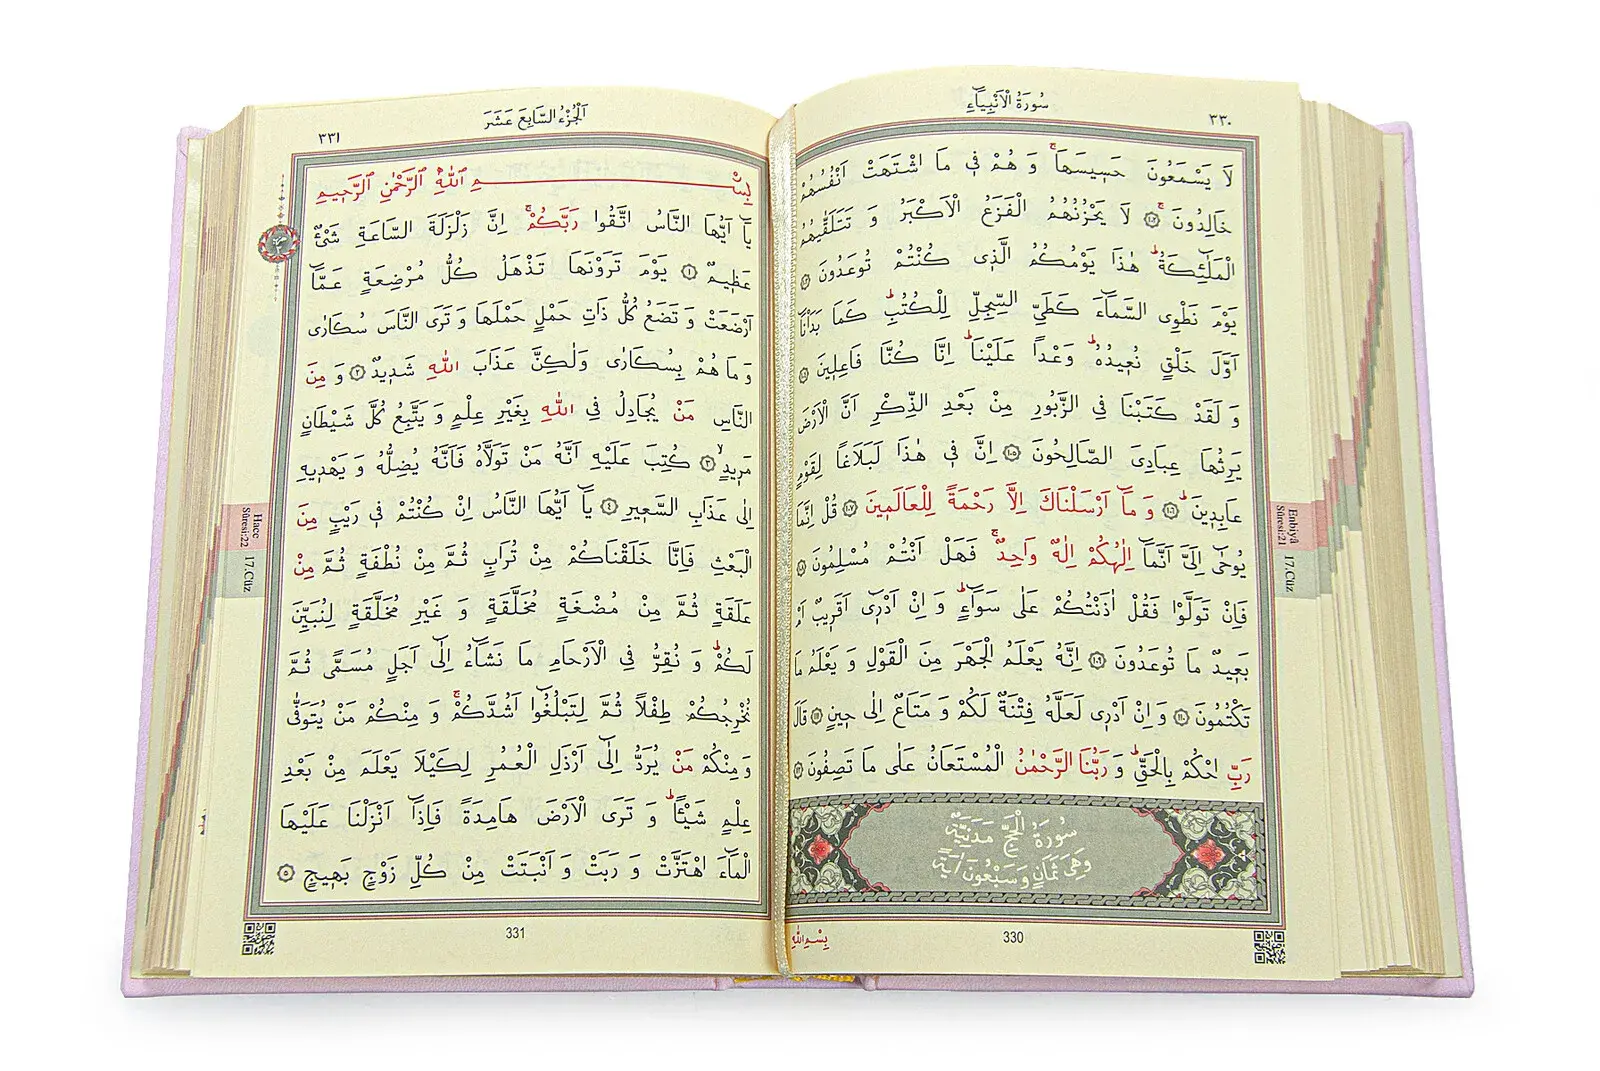 سُورَةُ الْاَنْبِيَاءِ
٣٣٠
لَا يَسْمَعُونَ حَسٖيسَهَاۚ وَ هُمْ فٖى مَا اشْتَهَتْ اَنْفُسُهُمْ
خَالِدُونَۚ ١٠٢ لَا يَحْزُنُهُمُ الْفَزَعُ الْاَكْبَرُ وَ تَتَلَقّٰيهُمُ
الْمَلٰٓئِكَةُؕ هٰذَا يَوْمُكُمُ الَّذٖى كُنْتُمْ تُوعَدُونَ ١٠٣
يَوْمَ نَطْوِى السَّمَٓاءَ كَطَىِّ السِّجِلِّ لِلْكُتُبِؕ كَمَا بَدَاْنَٓا
اَوَّلَ خَلْقٍ نُعٖيدُهُؕ وَعْداً عَلَيْنَاؕ اِنَّا كُنَّا فَاعِلٖينَ ١٠٤
وَ لَقَدْ كَتَبْنَا فِى الزَّبُورِ مِنْ بَعْدِ الذِّكْرِ اَنَّ الْاَرْضَ
يَرِثُهَا عِبَادِىَ الصَّالِحُونَ ١٠٥ اِنَّ فٖى هٰذَا لَبَلَاغاً لِقَوْمٍ
عَابِدٖينَؕ ١٠٦ وَ مَٓا اَرْسَلْنَاكَ اِلَّا رَحْمَةً لِلْعَالَمٖينَ ١٠٧ قُلْ اِنَّمَا
يُوحٰٓى اِلَىَّ اَنَّمَٓا اِلٰهُكُمْ اِلٰهٌ وَاحِدٌۚ فَهَلْ اَنْتُمْ مُسْلِمُونَ ١٠٨
فَاِنْ تَوَلَّوْا فَقُلْ اٰذَنْتُكُمْ عَلٰى سَوَٓاءٍؕ وَ اِنْ اَدْرٖٓى اَقَرٖيبٌ اَمْ
بَعٖيدٌ مَا تُوعَدُونَ ١٠٩ اِنَّهُ يَعْلَمُ الْجَهْرَ مِنَ الْقَوْلِ وَ يَعْلَمُ مَا
تَكْتُمُونَ ١١٠ وَ اِنْ اَدْرٖى لَعَلَّهُ فِتْنَةٌ لَكُمْ وَ مَتَاعٌ اِلٰى حٖينٍ ١١١ قَالَ
رَبِّ احْكُمْ بِالْحَقِّؕ وَ رَبُّنَا الرَّحْمٰنُ الْمُسْتَعَانُ عَلٰى مَا تَصِفُونَ ١١٢
سُورَةُ الْحَجِّ مَدَنِيَّةٌ
وَهِىَ ثَمَانٍ وَسَبْعُونَ اٰيَةً
بِسْمِ اللّٰهِ
330
Enbiyâ
Sûresi:21
17.Cüz
اَلْجُزْءُ السَّابِعَ عَشَرَ
٣٣١
بِسْمِ اللّٰهِ الرَّحْمٰنِ الرَّحٖيمِ
يَٓا اَيُّهَا النَّاسُ اتَّقُوا رَبَّكُمْۚ اِنَّ زَلْزَلَةَ السَّاعَةِ شَىْءٌ
عَظٖيمٌ ١ يَوْمَ تَرَوْنَهَا تَذْهَلُ كُلُّ مُرْضِعَةٍ عَمَّٓا
اَرْضَعَتْ وَ تَضَعُ كُلُّ ذَاتِ حَمْلٍ حَمْلَهَا وَ تَرَى النَّاسَ سُكَارٰى
وَ مَا هُمْ بِسُكَارٰى وَلٰكِنَّ عَذَابَ اللّٰهِ شَدٖيدٌ ٢ وَ مِنَ
النَّاسِ مَنْ يُجَادِلُ فِى اللّٰهِ بِغَيْرِ عِلْمٍ وَ يَتَّبِعُ كُلَّ شَيْطَانٍ
مَرٖيدٍۙ ٣ كُتِبَ عَلَيْهِ اَنَّهُ مَنْ تَوَلَّاهُ فَاَنَّهُ يُضِلُّهُ وَ يَهْدٖيهِ
اِلٰى عَذَابِ السَّعٖيرِ ٤ يَٓا اَيُّهَا النَّاسُ اِنْ كُنْتُمْ فٖى رَيْبٍ مِنَ
الْبَعْثِ فَاِنَّا خَلَقْنَاكُمْ مِنْ تُرَابٍ ثُمَّ مِنْ نُطْفَةٍ ثُمَّ مِنْ
عَلَقَةٍ ثُمَّ مِنْ مُضْغَةٍ مُخَلَّقَةٍ وَ غَيْرِ مُخَلَّقَةٍ لِنُبَيِّنَ
لَكُمْؕ وَ نُقِرُّ فِى الْاَرْحَامِ مَا نَشَٓاءُ اِلٰٓى اَجَلٍ مُسَمًّى ثُمَّ
نُخْرِجُكُمْ طِفْلاً ثُمَّ لِتَبْلُغُٓوا اَشُدَّكُمْۚ وَ مِنْكُمْ مَنْ يُتَوَفّٰى
وَ مِنْكُمْ مَنْ يُرَدُّ اِلٰٓى اَرْذَلِ الْعُمُرِ لِكَيْلَا يَعْلَمَ مِنْ بَعْدِ
عِلْمٍ شَيْئاًؕ وَ تَرَى الْاَرْضَ هَامِدَةً فَاِذَٓا اَنْزَلْنَا عَلَيْهَا
الْمَٓاءَ اهْتَزَّتْ وَ رَبَتْ وَ اَنْبَتَتْ مِنْ كُلِّ زَوْجٍ بَهٖيجٍ ٥
331
Hacc
Sûresi:22
17.Cüz